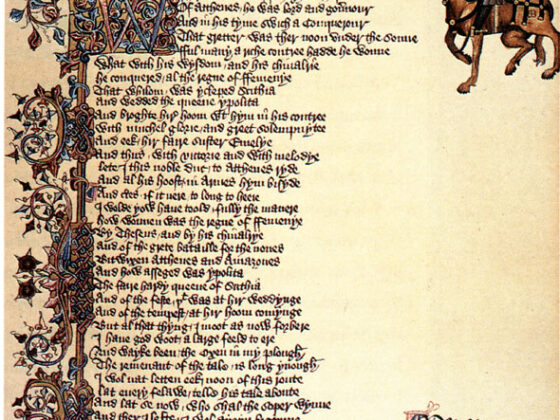 Of atthenes he was lord and gouernour
And in his tyme swich a Conquerour
That gretter was ther noon vnder the sonne
fful many a riche contree hadde he wonne
What with his wysdom and his chiualrie
he conquered al the regne of ffemenye
That whilom was ycleped Scithia
And wedded the queene ypolita
And broghte hir hoom wt hym in his contree
With muchel glorie and greet solempnytee
And eek hir faire suster Emelye
And thus with victorie and with melodye
lete I this noble duc to atthenes ryde
And al his hoost in Armes hym bisyde
And certes if it nere to long to heere
I wolde yow haue toold fully the manere
how wonnen was the regne of ffemenye
By Theseus and by his chiualrye
And of the grete bataille for the nones
Bitwixen Atthenes and Amazones
And how asseged was ypolita
The faire hardy queene of Scithia
And of the feste yt was at hir weddynge
And of the tempest at hir hoom comynge
But al that thyng I moot as now forbere
I haue god woot a large feeld to ere
And wayke been the Oxen in my plough
The remenant of the tale is long ynough
I wol nat letten eek noon of this route
lat euery felawe telle his tale aboute
And lat se now who shal the soper wynne
And ther I lefte I wol